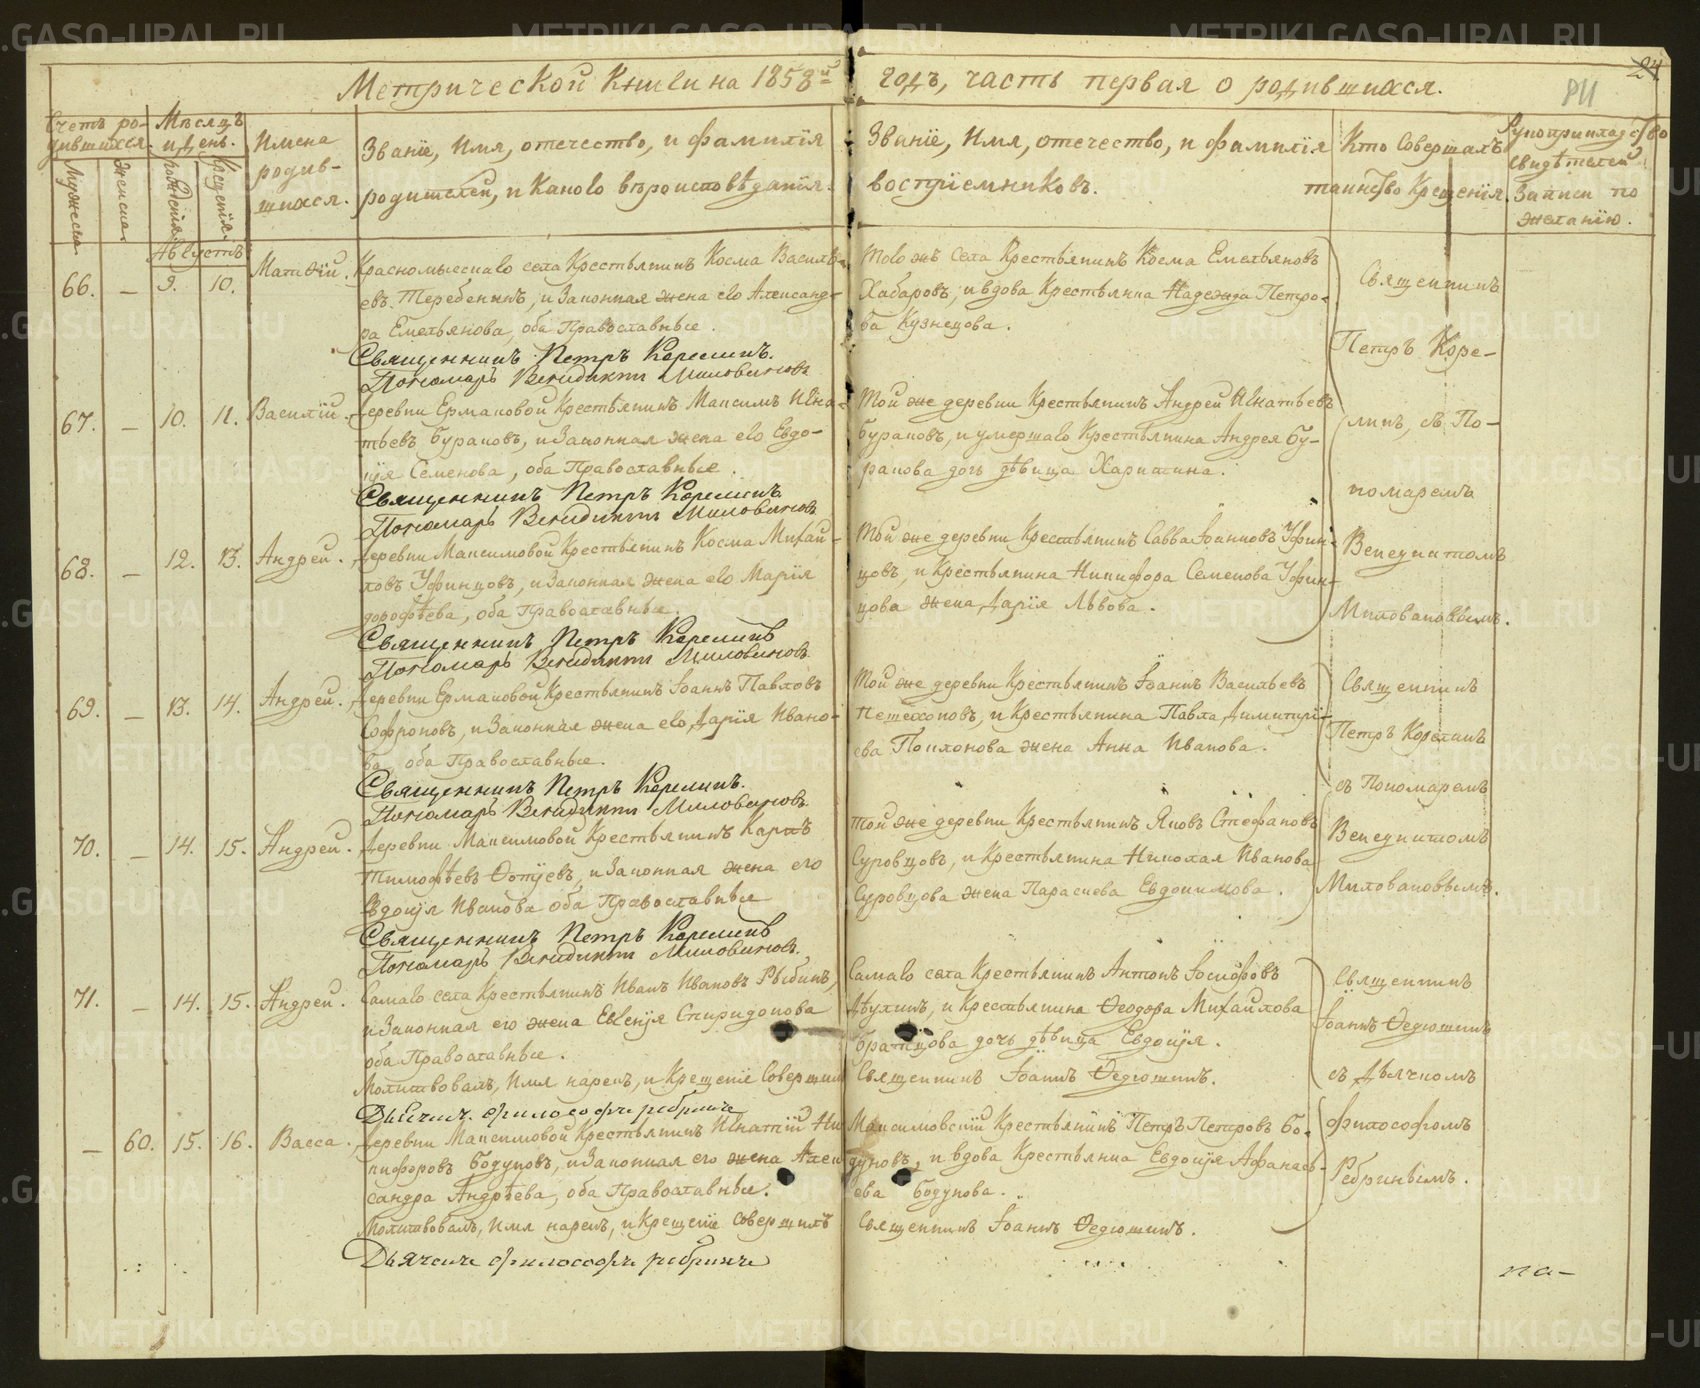 Метрической книги на 1858й годъ, часть первая о родившихся.
24
Счетъ ро-
дившихся.
Мужеска
Женска
Мѣсяцъ
и день.
рожденія
крещенія
Имена
родив-
шихся.
Званіе, имя, отечество, и фамилія
родителей, и какого вѣроисповѣданія.
Званіе, имя, отечество, и фамилія
воспріемниковъ.
Кто совершалъ
таинство крещенія.
Рукоприкладство
свидѣтелей
записи по
желанію.
Августъ
66. – 9. 10. Матѳій.
Красномысскаго села крестьянинъ Косма Василь-
евъ Теребенинъ, и законная жена его Александ-
ра Емельянова, оба православные.
Священникъ Петръ Корелинъ.
Пономарь Венидиктъ Миловановъ
Того жъ села крестьянинъ Косма Емельяновъ
Хабаровъ, и вдова крестьянка Надежда Петро-
ва Кузнецова.
67. – 10. 11. Василій.
Деревни Ермаковой крестьянинъ Максимъ Игна-
тьевъ Бураковъ, и законная жена его Евдо-
кія Семенова, оба православные.
Священникъ Петръ Корелинъ
Пономарь Венидиктъ Миловановъ
Той же деревни крестьянинъ Андрей Игнатьевъ
Бураковъ, и умершаго крестьянина Андрея Бу-
ракова дочь дѣвица Харитина.
68. – 12. 13. Андрей.
Деревни Максимовой крестьянинъ Косма Михай-
ловъ Уфинцовъ, и законная жена его Марія
Дорофѣева, оба православные.
Священникъ Петръ Корелинъ
Пономарь Венидиктъ Миловановъ
Той же деревни крестьянинъ Савва Іоанновъ Уфин-
цовъ, и крестьянина Никифора Семенова Уфин-
цова жена Дарія Львова.
Священникъ
Петръ Коре-
линъ, съ по-
номаремъ
Венедиктомъ
Миловановымъ.
69. – 13. 14. Андрей.
Деревни Ермаковой крестьянинъ Іоаннъ Павловъ
Софроновъ, и законная жена его Дарія Ивано-
ва, оба православные.
Священникъ Петръ Корелинъ.
Пономарь Венидиктъ Миловановъ
Той же деревни крестьянинъ Іоаннъ Васильевъ
Пешехоновъ, и крестьянина Павла Димитрі-
ева Поклонова жена Анна Иванова.
70. – 14. 15. Андрей.
Деревни Максимовой крестьянинъ Карпъ
Тимофѣевъ Фотѣевъ, и законная жена его
Евдокія Иванова оба православные
Священникъ Петръ Корелинъ
Пономарь Венидиктъ Миловановъ.
Той же деревни крестьянинъ Яковъ Стефановъ
Суровцовъ, и крестьянина Николая Иванова
Суровцова жена Параскева Евдокимова.
Священникъ
Петръ Корелинъ
съ пономаремъ
Венедиктомъ
Миловановымъ.
71. – 14. 15. Андрей.
Самаго села крестьянинъ Иванъ Ивановъ Рыбинъ,
и законная его жена Евгенія Спиридонова
оба православные.
Молитвовалъ, имя нарекъ, и крещеніе совершилъ священникъ Іоаннъ Ѳедюшинъ.
Дьячекъ философъ Ребринъ
Самаго села крестьянинъ Антонъ Іосифовъ
и крестьянина Ѳеодора Михайлова
Братцова дочь дѣвица Евдокія.
– 60. 15. 16. Васса.
Деревни Максимовой крестьянинъ Игнатій Ни-
кифоровъ Бодуновъ, и законная его жена Алек-
сандра Андрѣева, оба православные.
Молитвовалъ, имя нарекъ, и крещеніе совершилъ священникъ Іоаннъ Ѳедюшинъ.
Дьячекъ философъ Ребринъ
Максимовскій крестьянинъ Петръ Петровъ Бо-
дуновъ, и вдова крестьянка Евдокія Афанась-
ева Бодунова.
Священникъ
Іоаннъ Ѳедюшинъ
съ дьячкомъ
философомъ
Ребринымъ.
на-